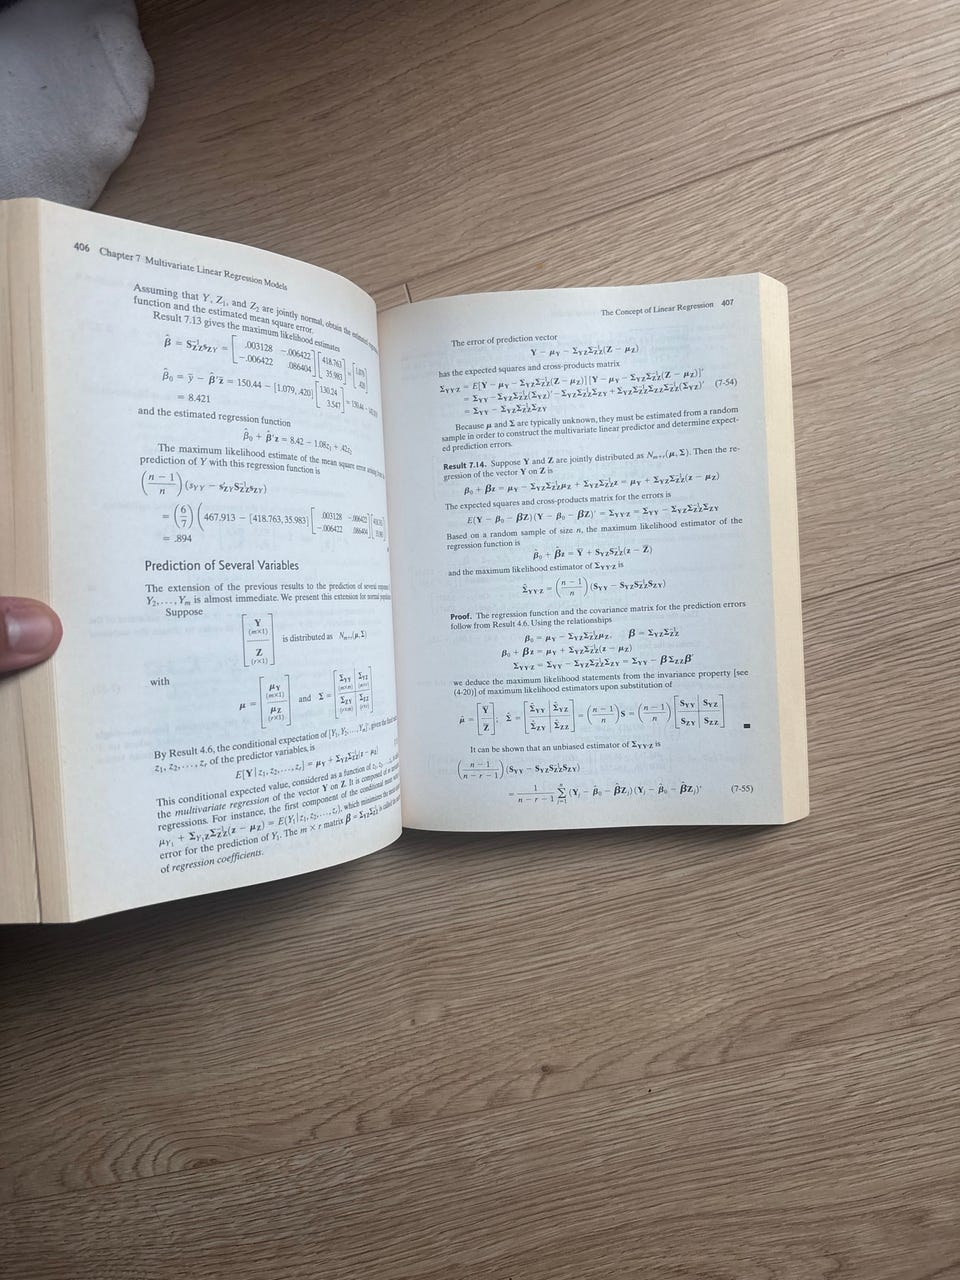 406 Chapter 7 Multivariate Linear Regression Models
Assuming that Y, Z₁, and Z₂ are jointly normal, obtain the estimated
function and the estimated mean square error.
Result 7.13 gives the maximum likelihood estimates
β̂ = S⁻¹ZZ sZY = [ .003128 -.006422 ; -.006422 .086404 ] [ 418.763 ; 35.983 ] = [ 1.079 ; .420 ]
β̂₀ = ȳ − β̂′z̄ = 150.44 − [1.079, .420] [ 130.24 ; 3.547 ] = 150.44 −
= 8.421
and the estimated regression function
β̂₀ + β̂′z = 8.42 − 1.08z₁ + .42z₂
The maximum likelihood estimate of the mean square error arising
prediction of Y with this regression function is
((n − 1)/n) (sYY − s′ZY S⁻¹ZZ sZY)
= (6/7) (467.913 − [418.763, 35.983] [ .003128 -.006422 ; -.006422 .086404 ]
= .894
Prediction of Several Variables
The extension of the previous results to the prediction of several
Y₂, . . . , Yₘ is almost immediate. We present this extension for normal
Suppose
[ Y (m×1) ; Z (r×1) ] is distributed as Nₘ₊ᵣ(μ, Σ)
with
μ = [ μY (m×1) ; μZ (r×1) ] and Σ = [ ΣYY (m×m) ΣYZ (m×r) ; ΣZY (r×m) ΣZZ (r×r) ]
By Result 4.6, the conditional expectation of [Y₁, Y₂, . . . , Yₘ]′, given the fixed
z₁, z₂, . . . , zᵣ of the predictor variables, is
E[Y | z₁, z₂, . . . , zᵣ] = μY + ΣYZ Σ⁻¹ZZ(z − μZ)
This conditional expected value, considered as a function of z₁, z₂, . . . , is
the multivariate regression of the vector Y on Z. It is composed of m
regressions. For instance, the first component of the conditional mean
μY₁ + ΣY₁Z Σ⁻¹ZZ(z − μZ) = E(Y₁ | z₁, z₂, . . . , zᵣ), which minimizes the mean
error for the prediction of Y₁. The m × r matrix β = ΣYZ Σ⁻¹ZZ is called
of regression coefficients.
The Concept of Linear Regression 407
The error of prediction vector
Y − μY − ΣYZ Σ⁻¹ZZ(Z − μZ)
has the expected squares and cross-products matrix
ΣYY·Z = E[Y − μY − ΣYZ Σ⁻¹ZZ(Z − μZ)] [Y − μY − ΣYZ Σ⁻¹ZZ(Z − μZ)]′
= ΣYY − ΣYZ Σ⁻¹ZZ(ΣYZ)′ − ΣYZ Σ⁻¹ZZ ΣZY + ΣYZ Σ⁻¹ZZ ΣZZ Σ⁻¹ZZ(ΣYZ)′ (7-54)
= ΣYY − ΣYZ Σ⁻¹ZZ ΣZY
Because μ and Σ are typically unknown, they must be estimated from a random
sample in order to construct the multivariate linear predictor and determine expect-
ed prediction errors.
Result 7.14. Suppose Y and Z are jointly distributed as Nₘ₊ᵣ(μ, Σ). Then the re-
gression of the vector Y on Z is
β₀ + βz = μY − ΣYZ Σ⁻¹ZZ μZ + ΣYZ Σ⁻¹ZZ z = μY + ΣYZ Σ⁻¹ZZ(z − μZ)
The expected squares and cross-products matrix for the errors is
E(Y − β₀ − βZ)(Y − β₀ − βZ)′ = ΣYY·Z = ΣYY − ΣYZ Σ⁻¹ZZ ΣZY
Based on a random sample of size n, the maximum likelihood estimator of the
regression function is
β̂₀ + β̂z = Ȳ + SYZ S⁻¹ZZ(z − Z̄)
and the maximum likelihood estimator of ΣYY·Z is
Σ̂YY·Z = ((n − 1)/n) (SYY − SYZ S⁻¹ZZ SZY)
Proof. The regression function and the covariance matrix for the prediction errors
follow from Result 4.6. Using the relationships
β₀ = μY − ΣYZ Σ⁻¹ZZ μZ, β = ΣYZ Σ⁻¹ZZ
β₀ + βz = μY + ΣYZ Σ⁻¹ZZ(z − μZ)
ΣYY·Z = ΣYY − ΣYZ Σ⁻¹ZZ ΣZY = ΣYY − βΣZZβ′
we deduce the maximum likelihood statements from the invariance property [see
(4-20)] of maximum likelihood estimators upon substitution of
μ̂ = [ Ȳ ; Z̄ ]; Σ̂ = [ Σ̂YY Σ̂YZ ; Σ̂ZY Σ̂ZZ ] = ((n − 1)/n) S = ((n − 1)/n) [ SYY SYZ ; SZY SZZ ]
It can be shown that an unbiased estimator of ΣYY·Z is
((n − 1)/(n − r − 1)) (SYY − SYZ S⁻¹ZZ SZY)
= 1/(n − r − 1) Σⁿⱼ₌₁ (Yⱼ − β̂₀ − β̂Zⱼ)(Yⱼ − β̂₀ − β̂Zⱼ)′ (7-55)